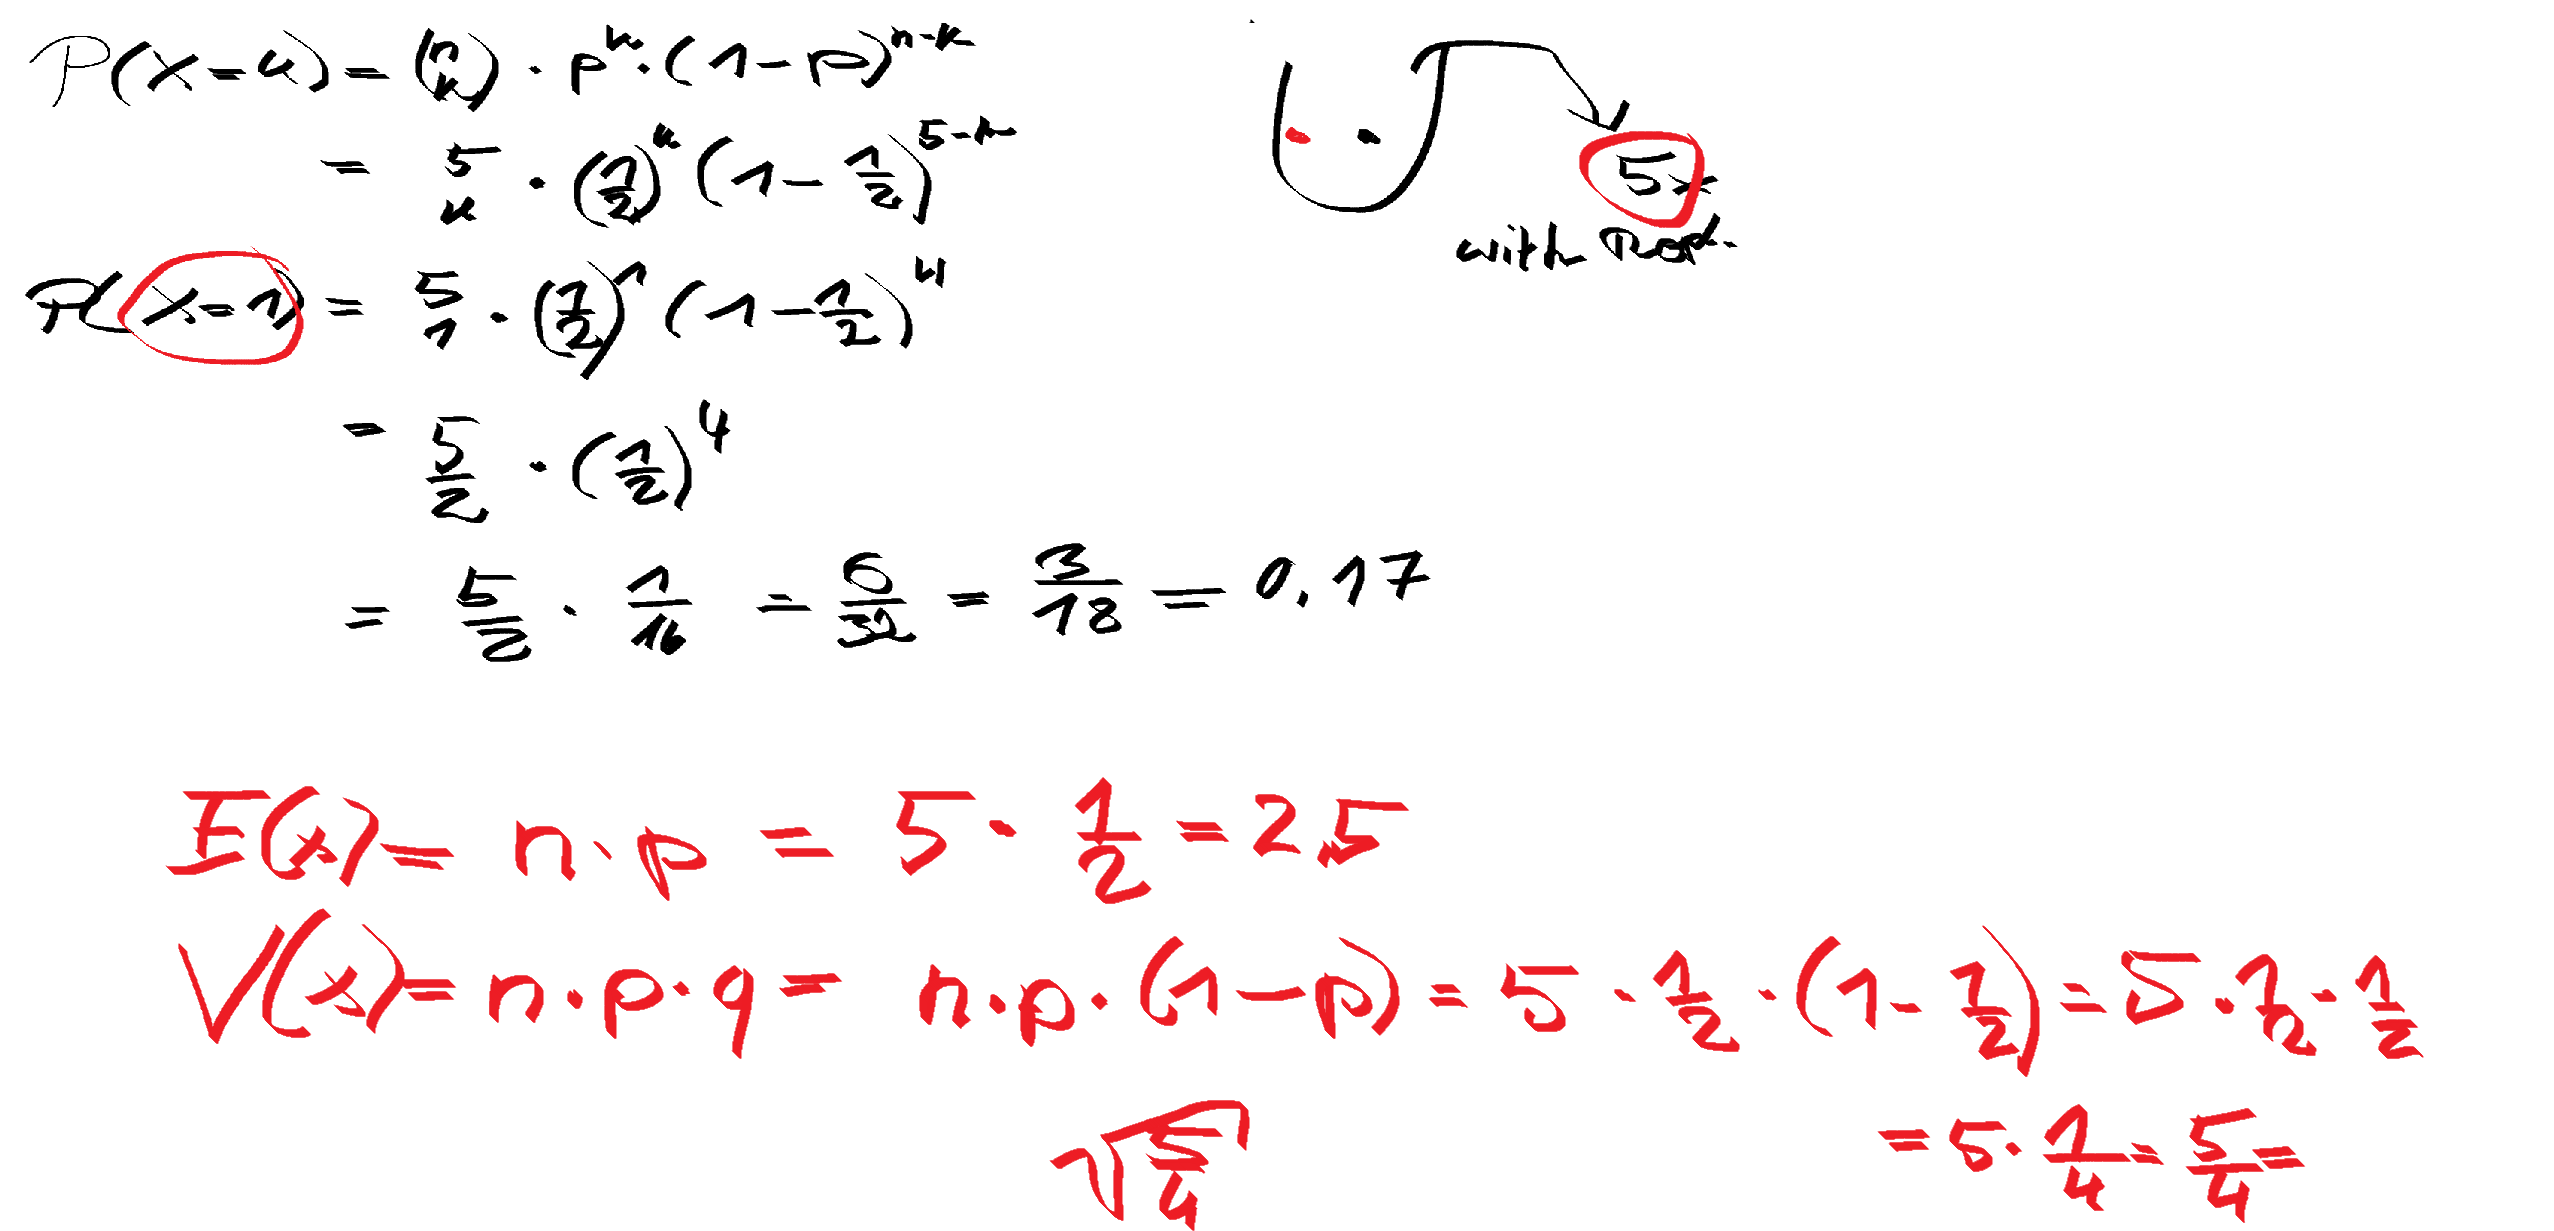 P(X=k) = (n k) · p^k · (1-p)^n-k
= 5 k · (1/2)^k (1 - 1/2)^5-k
P(X=1) = 5 1 · (1/2)^1 (1 - 1/2)^4
= 5/2 · (1/2)^4
= 5/2 · 1/16 = 6/32 = 3/18 = 0.17
5x
with Repl.
E(x) = n · p = 5 · 1/2 = 2,5
V(x) = n · p · q = n · p · (1-p) = 5 · 1/2 · (1 - 1/2) = 5 · 1/2 · 1/2
= 5 · 1/4 = 5/4 =
√5/4